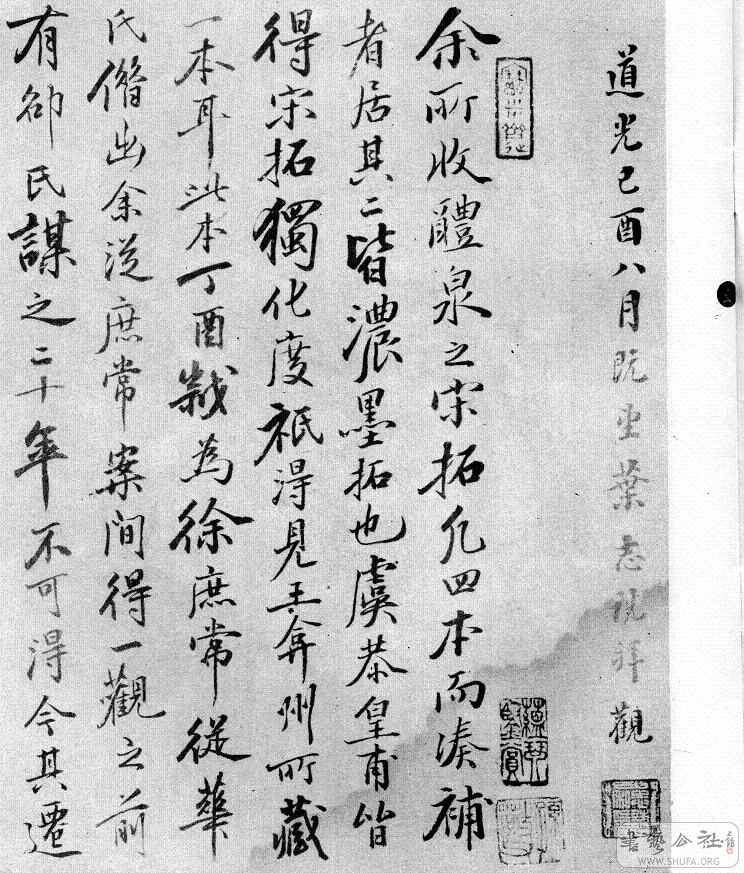 道光己酉八月既望葉志詵拜觀
余所收醴泉之宋拓凡四本而湊補
者居其二皆濃墨拓也虞恭皇甫皆
得宋拓獨化度祇得見王弇州所藏
一本耳此本丁酉歲為徐庶常從華
氏借出余從庶常案間得一觀之前
有邵氏謀之二十年不可得今其遷
書藝公社
WWW.SHUFA.ORG